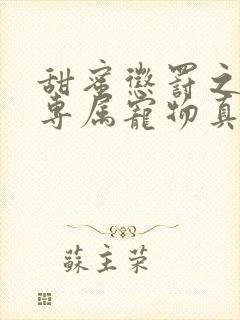 甜蜜懲罰之
專屬寵物真
蘇主荣